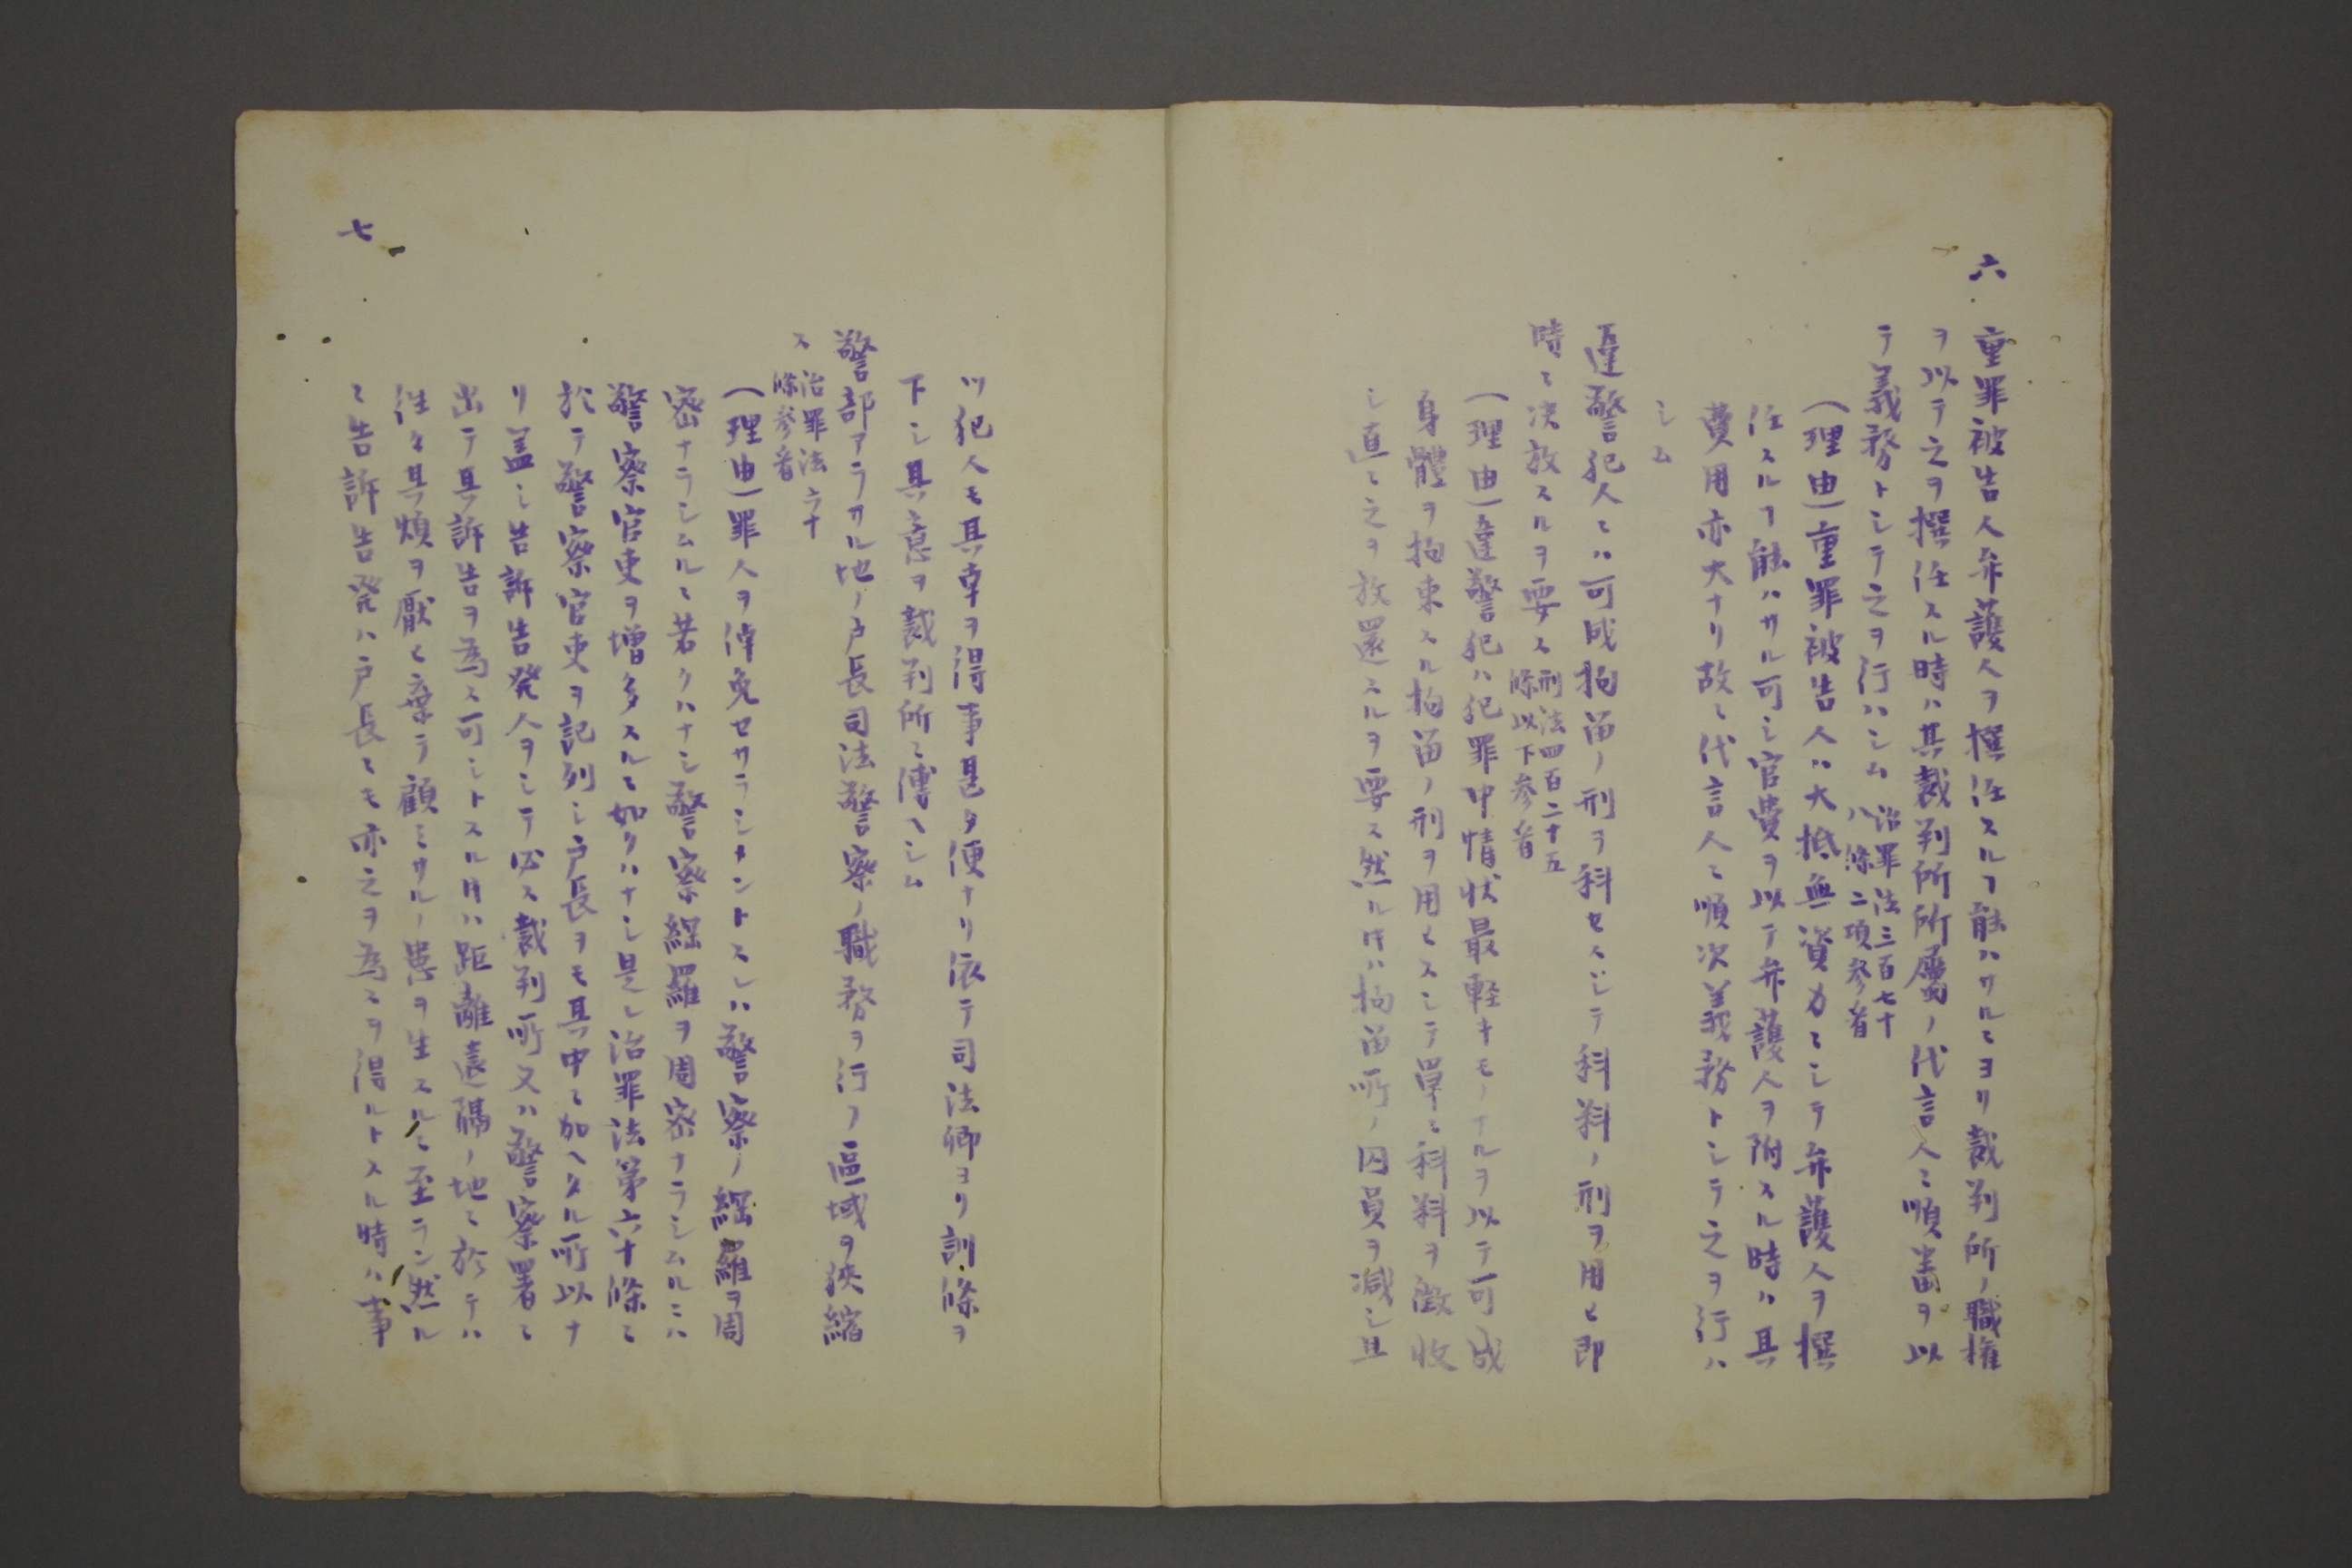 六
重罪被告人弁護人ヲ撰任スルヿ能ハサルニヨリ裁判所ノ職権
ヲ以テ之ヲ撰任スル時ハ其裁判所所属ノ代言人ニ順番ヲ以
テ義務トシテ之ヲ行ハシム 治罪法三百七十
八條二項参看
(理由)重罪被告人ハ大抵無資力ニシテ弁護人ヲ撰
任スルヿ能ハサル可シ官費ヲ以テ弁護人ヲ附スル時ハ其
費用亦大ナリ故ニ代言人ニ順次義務トシテ之ヲ行ハ
シム
違警犯人ニハ可成拘留ノ刑ヲ科セスシテ科料ノ刑ヲ用ヒ即
時ニ決放スルヲ要ス 刑法四百二十五
條以下参看
(理由)違警犯ハ犯罪中情状最軽キモノナルヲ以テ可成
身體ヲ拘束スル拘留ノ刑ヲ用ヒスシテ單ニ科料ヲ徴収
シ直ニ之ヲ放還スルヲ要ス然ル片ハ拘留所ノ囚員ヲ減シ且
ツ犯人モ其幸ヲ得事甚タ便ナリ依テ司法卿ヨリ訓條ヲ
下シ其意ヲ裁判所ニ傳ヘシム
警部アラサル地ノ戸長司法警察ノ職務ヲ行フ區域ヲ狹縮
ス 治罪法六十
條参看
(理由)罪人ヲ倖免セサラシメントスレハ警察ノ綱羅ヲ周
密ナラシムルニ若クハナシ警察綱羅ヲ周密ナラシムルニハ
警察官吏ヲ増多スルニ如クハナシ是レ治罪法第六十條ニ
於テ警察官吏ヲ記列シ戸長ヲモ其中ニ加ヘタル所以ナ
リ蓋シ告訴告発人ヲシテ必ス裁判所又ハ警察署ニ
出テ其訴告ヲ為ス可シトスル片ハ距離遠隔ノ地ニ於テハ
往々其煩ヲ厭ヒ棄テ顧ミサルノ患ヲ生スルニ至ラン然ル
ニ告訴告発ハ戸長ニモ亦之ヲ為スヲ得ルトスル時ハ事
七